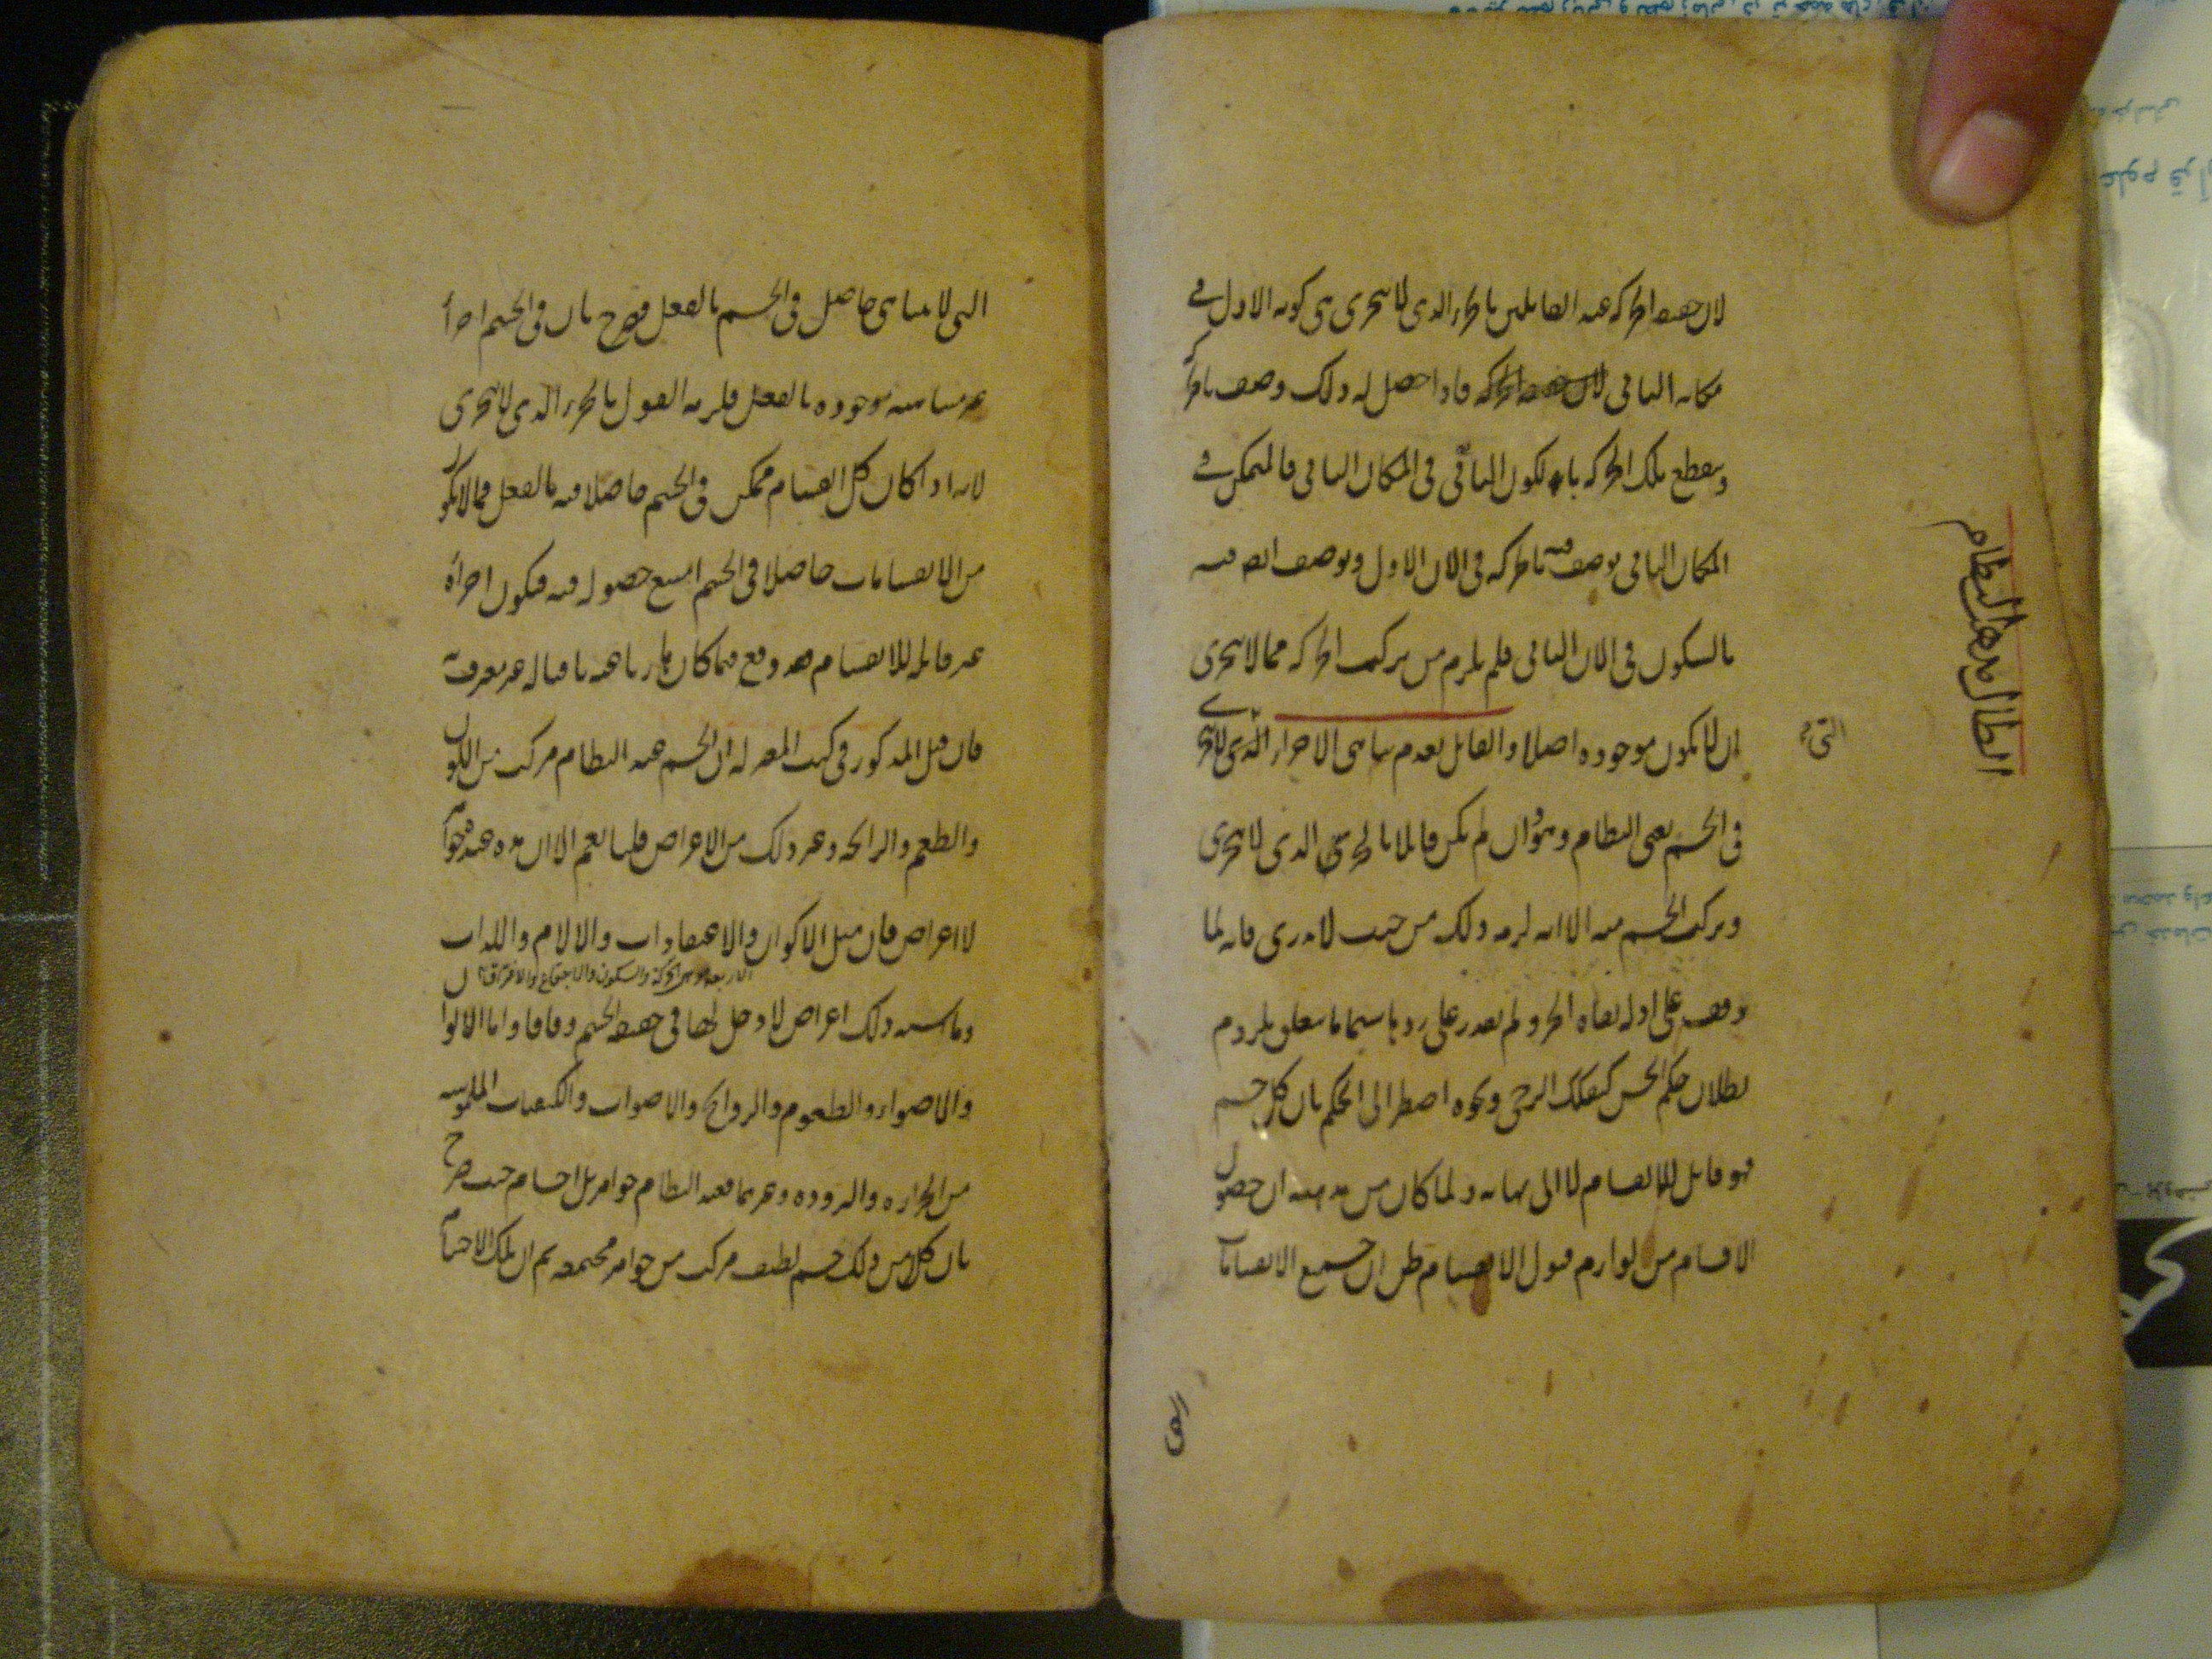 لان حقيقة الحركة عند القايلين بالجزء الذي لا يتجزى هي كونه الاول في
مكانه الثاني فاذا حصل له ذلك وصف بالحركة
وينقطع تلك الحركة بالكون الثاني في المكان الثاني فالمتمكن في
المكان الثاني يوصف فيه بالحركة في الان الاول ويوصف ايضا فيه
بالسكون في الان الثاني فلم يلزم من تركيب الحركة مما لا يتجزى
ان لا يكون موجودة اصلا والقايل بعدم تناهي الاجزاء التي لا يتجزى
ابطال مذهب النظام
في الجسم يعني النظام وهو ان لم يكن قائلا بالجزء الذي لا يتجزى
وتركب الجسم منه الا انه لزمه ذلك من حيث لا يدري فانه لما
وقف على ادلة نفاة الجزء ولم يقدر على ردها سيما ما يتعلق بلزوم
بطلان حكم الحس كتفكك الرحى ونحوه اضطر الى الحكم بان كل جسم
فهو قابل للانقسام لا الى نهاية ولما كان من مذهبه ان حصول
الاقسام من لوازم قبول الانقسام ظن ان جميع الانقسامات
التي
التي لا يتناهى حاصل في الجسم بالفعل فصرح بان في الجسم اجزأ
غير متناهية موجودة بالفعل فلزمه القول بالجزء الذي لا يتجزى
لانه اذا كان كل انقسام ممكن في الجسم حاصلا فيه بالفعل فما لا يكون
من الانقسامات حاصلا في الجسم امتنع حصوله فيه فيكون اجزاؤه
غير قابلة للانقسام فقد وقع فيما كان هاربا عنه قايله غير معرفته
فان قيل المذكور في كتب المعتزلة ان الجسم عند النظام مركب من اللون
والطعم والرايحة وغير ذلك من الاعراض قلنا نعم الا ان هذه عنده جواهر
لا اعراض فان مثل الاكوان والاعتقادات والالام واللذات
الاربعة هي الحركة والسكون والاجتماع والافتراق
وما اشبه ذلك اعراض لا دخل لها في حقيقة الجسم وفاقا واما الالوان
والاضواء والطعوم والروايح والاصوات والكيفيات الملموسة
من الحرارة والبرودة وغيرهما فعند النظام جواهر بل اجسام حيث صرح
بان كلا من ذلك جسم لطيف مركب من جواهر مجتمعة ثم ان تلك الاجسام